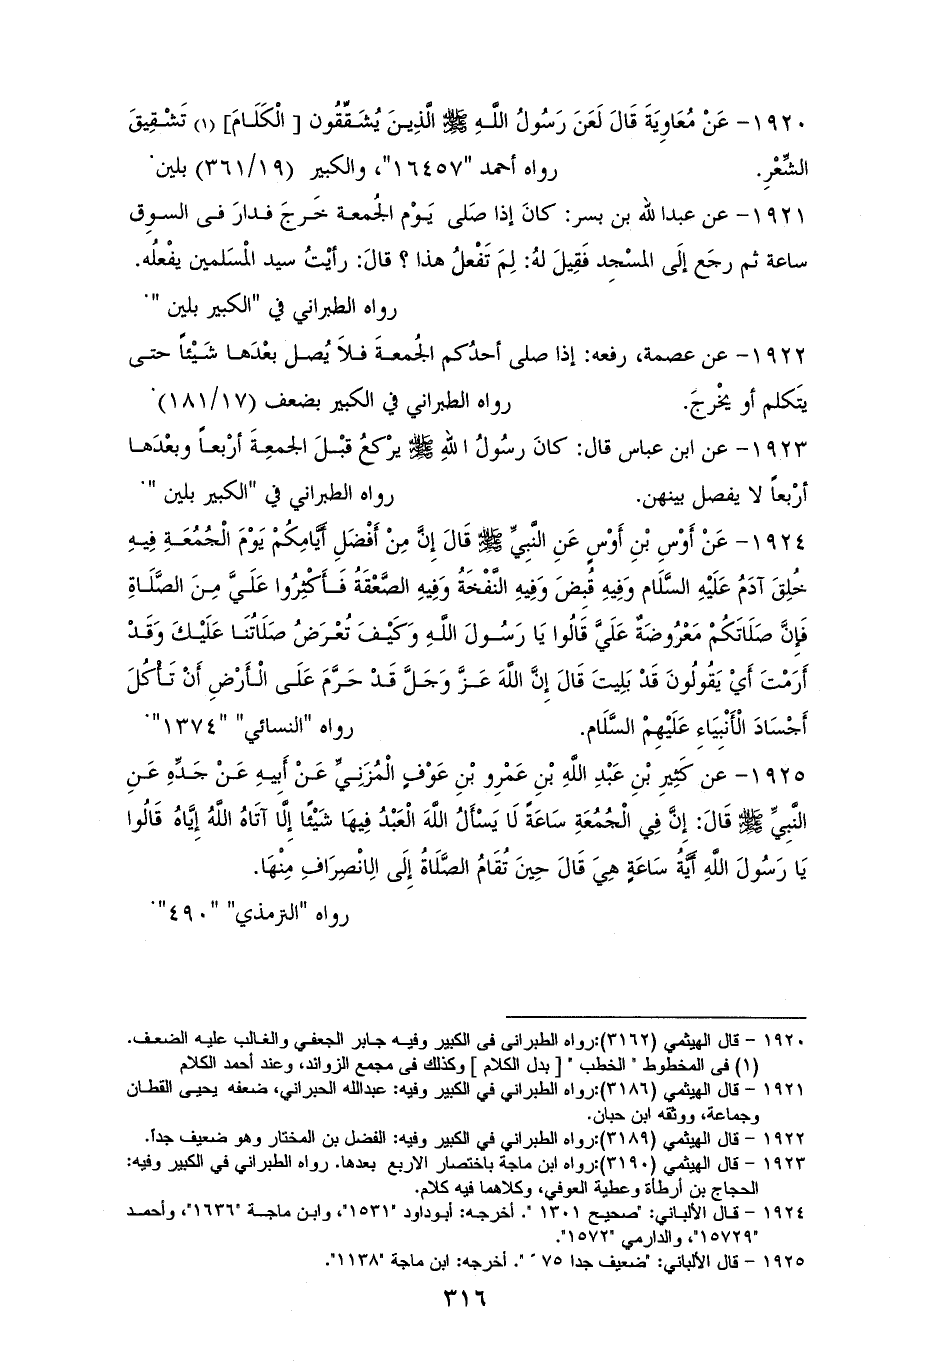 ١٩٢٠- عَنْ مُعَاوِيَةَ قَالَ لَعَنَ رَسُولُ اللَّهِ ﷺ الَّذِينَ يُشَقِّقُون [ الْكَلَامَ] (١) تَشْقِيقَ
الشِّعْرِ. رواه أحمد "١٦٤٥٧"، والكبير (٣٦١/١٩) بلين.
١٩٢١- عن عبدا لله بن بسر: كانَ إذا صَلى يَوْم الجُمعة خَرجَ فدارَ فى السوق
ساعة ثم رجَع إلَى المسْجد فَقِيلَ لهُ: لِمَ تَفْعلُ هذا ؟ قالَ: رأيْتُ سيد المُسَلمين يفْعلُه.
رواه الطبراني في "الكبير بلين ".
١٩٢٢- عن عصمة، رفعه: إذا صلى أحدُكم الجُمعةَ فلاَ يُصل بعْدَها شَيْئاً حتى
يَتَكلم أو يخْرجَ. رواه الطبراني في الكبير بضعف (١٨١/١٧).
١٩٢٣- عن ابن عباس قال: كانَ رسُولُ ا للهِ ﷺ يرْكعُ قبْلَ الجمعِةَ أرْبعاً وبعْدَها
أرْبعاً لا يفصل بينهن. رواه الطبراني في "الكبير بلين ".
١٩٢٤- عَنْ أَوْسِ بْنِ أَوْسٍ عَنِ النَّبِيِّ ﷺ قَالَ إِنَّ مِنْ أَفْضَلِ أَيَّامِكُمْ يَوْمَ الْجُمُعَةِ فِيهِ
خُلِقَ آدَمُ عَلَيْهِ السَّلَام وَفِيهِ قُبِضَ وَفِيهِ النَّفْخَةُ وَفِيهِ الصَّعْقَةُ فَأَكْثِرُوا عَلَيَّ مِنَ الصَّلَاةِ
فَإِنَّ صَلَاتَكُمْ مَعْرُوضَةٌ عَلَيَّ قَالُوا يَا رَسُولَ اللَّهِ وَكَيْفَ تُعْرَضُ صَلَاتُنَا عَلَيْكَ وَقَدْ
أَرَمْتَ أَيْ يَقُولُونَ قَدْ بَلِيتَ قَالَ إِنَّ اللَّهَ عَزَّ وَجَلَّ قَدْ حَرَّمَ عَلَى الْأَرْضِ أَنْ تَأْكُلَ
أَجْسَادَ الْأَنْبِيَاءِ عَلَيْهِمْ السَّلَام. رواه "النسائي" "١٣٧٤".
١٩٢٥- عن كَثِيرِ بْنِ عَبْدِ اللَّهِ بْنِ عَمْرِو بْنِ عَوْفٍ الْمُزَنِيِّ عَنْ أَبِيهِ عَنْ جَدِّهِ عَنِ
النَّبِيِّ ﷺ قَالَ: إِنَّ فِي الْجُمُعَةِ سَاعَةً لَا يَسْأَلُ اللَّهَ الْعَبْدُ فِيهَا شَيْئًا إِلَّا آتَاهُ اللَّهُ إِيَّاهُ قَالُوا
يَا رَسُولَ اللَّهِ أَيَّةُ سَاعَةٍ هِيَ قَالَ حِينَ تُقَامُ الصَّلَاةُ إِلَى الِانْصِرَافِ مِنْهَا.
رواه "الترمذي" "٤٩٠".
١٩٢٠ - قال الهيثمي (٣١٦٢):رواه الطبرانى فى الكبير وفيه جابر الجعفي والغالب عليه الضعف.
(١) فى المخطوط " الخطب " [ بدل الكلام ] وكذلك فى مجمع الزوائد، وعند أحمد الكلام
١٩٢١ - قال الهيثمي (٣١٨٦):رواه الطبراني في الكبير وفيه: عبدالله الحبراني، ضعفه يحيى القطان
وجماعة، ووثقه ابن حبان.
١٩٢٢ - قال الهيثمي (٣١٨٩):رواه الطبراني في الكبير وفيه: الفضل بن المختار وهو ضعيف جداً.
١٩٢٣ - قال الهيثمي (٣١٩٠):رواه ابن ماجة باختصار الاربع بعدها. رواه الطبراني في الكبير وفيه:
الحجاج بن أرطأة وعطية العوفي، وكلاهما فيه كلام.
١٩٢٤ - قال الألباني: "صحيح ١٣٠١ ". أخرجه: أبوداود "١٥٣١"، وابن ماجة "١٦٣٦"، وأحمد
"١٥٧٢٩"، والدارمي "١٥٧٢".
١٩٢٥ - قال الألباني: "ضعيف جدا ٧٥ ". أخرجه: ابن ماجة "١١٣٨".
٣١٦